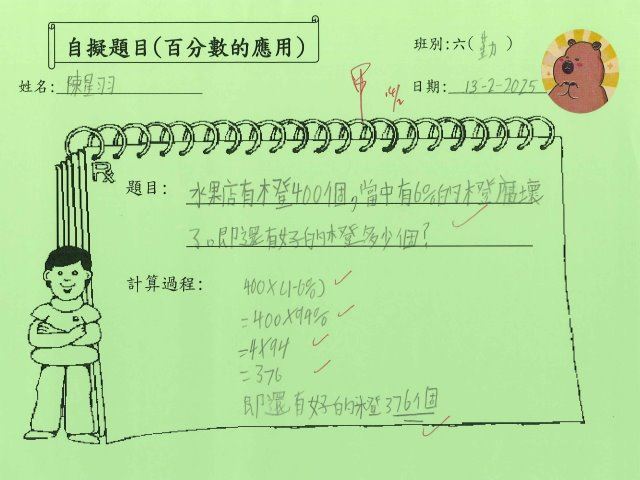 自擬題目(百分數的應用)
班別:六(勤)
姓名:陳星羽
日期:13-2-2025
甲 14/2
題目:水果店有橙400個,當中有6%的橙腐壞
了。即還有好的橙多少個?
計算過程:
400×(1-6%)
=400×94%
=4×94
=376
即還有好的橙376個